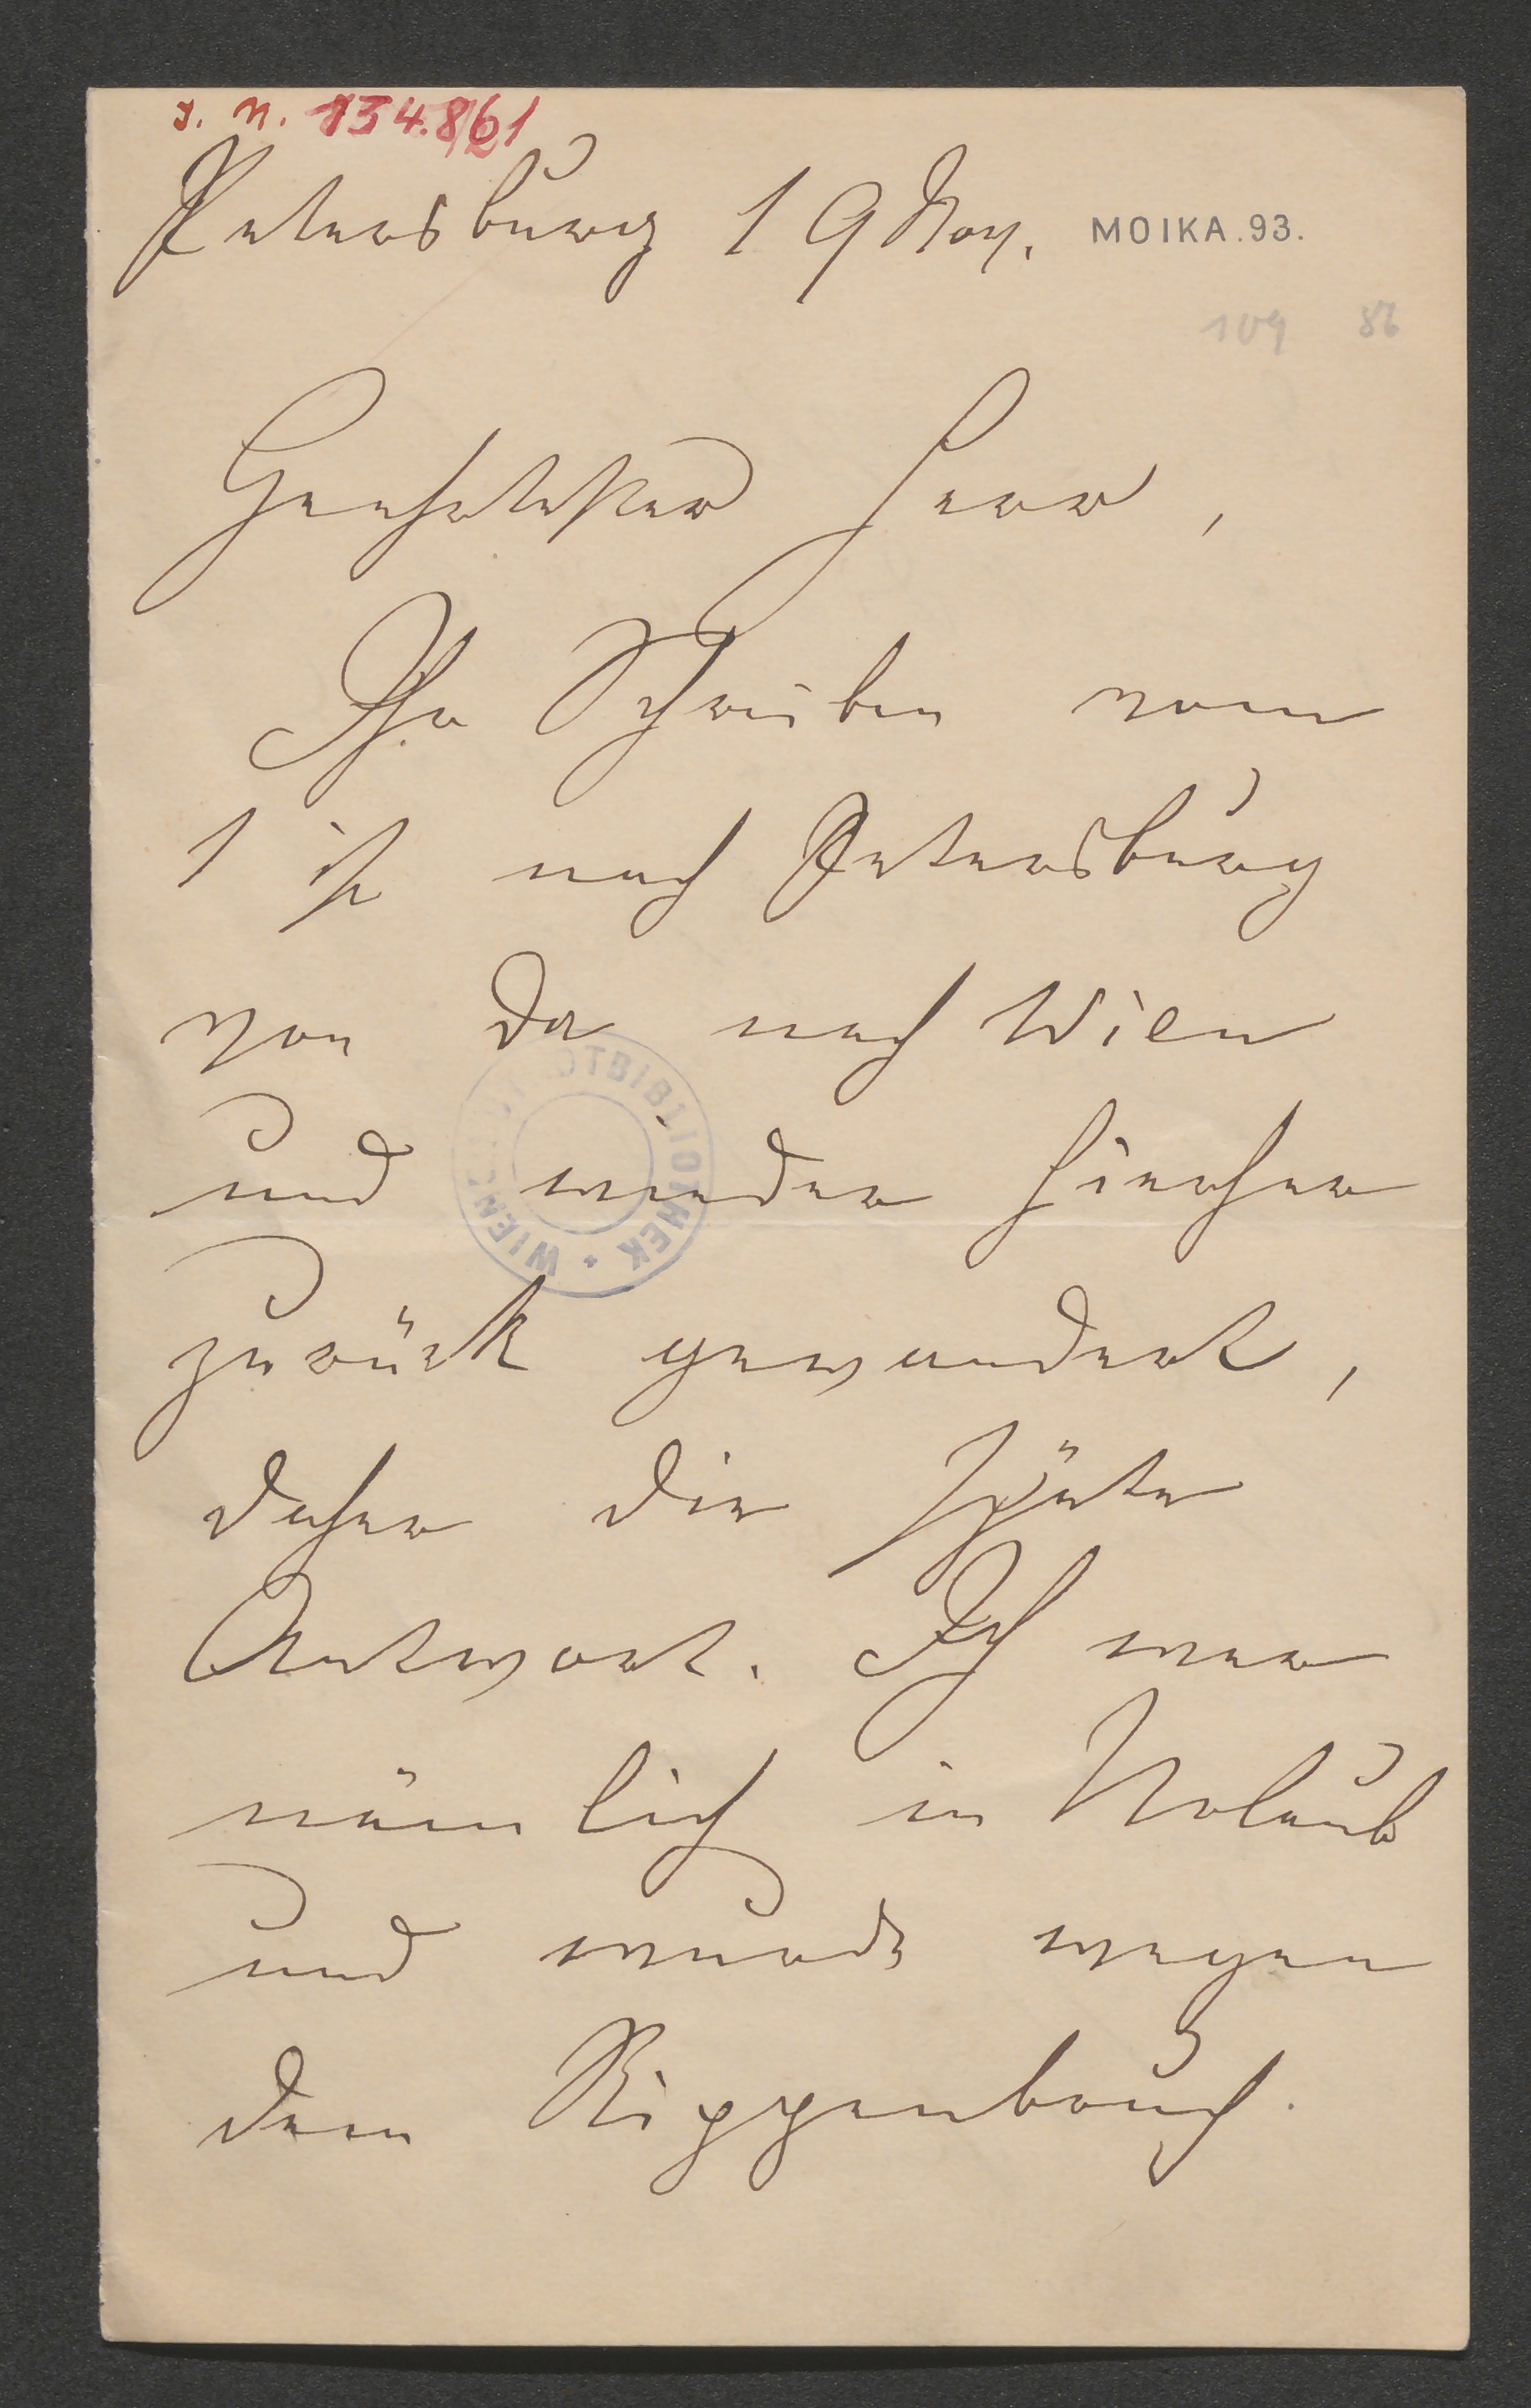 J. N. 134.861
Petersburg 19 Nov. MOIKA.93.
109 86
Geehrtester Herr,
Ihr Schreiben vom
1 ist nach Petersburg
von da nach Wien
und wieder hierher
zurück gewandert,
daher die späte
Antwort. Ich war
nämlich in Urlaub
und wurde wegen
dem Rippenbruch.
STADTBIBLIOTHEK * WIENER